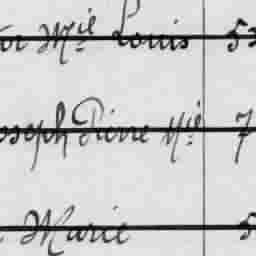 tor Mie Louis 53
oseph Pierre Mie 7
Marie 5